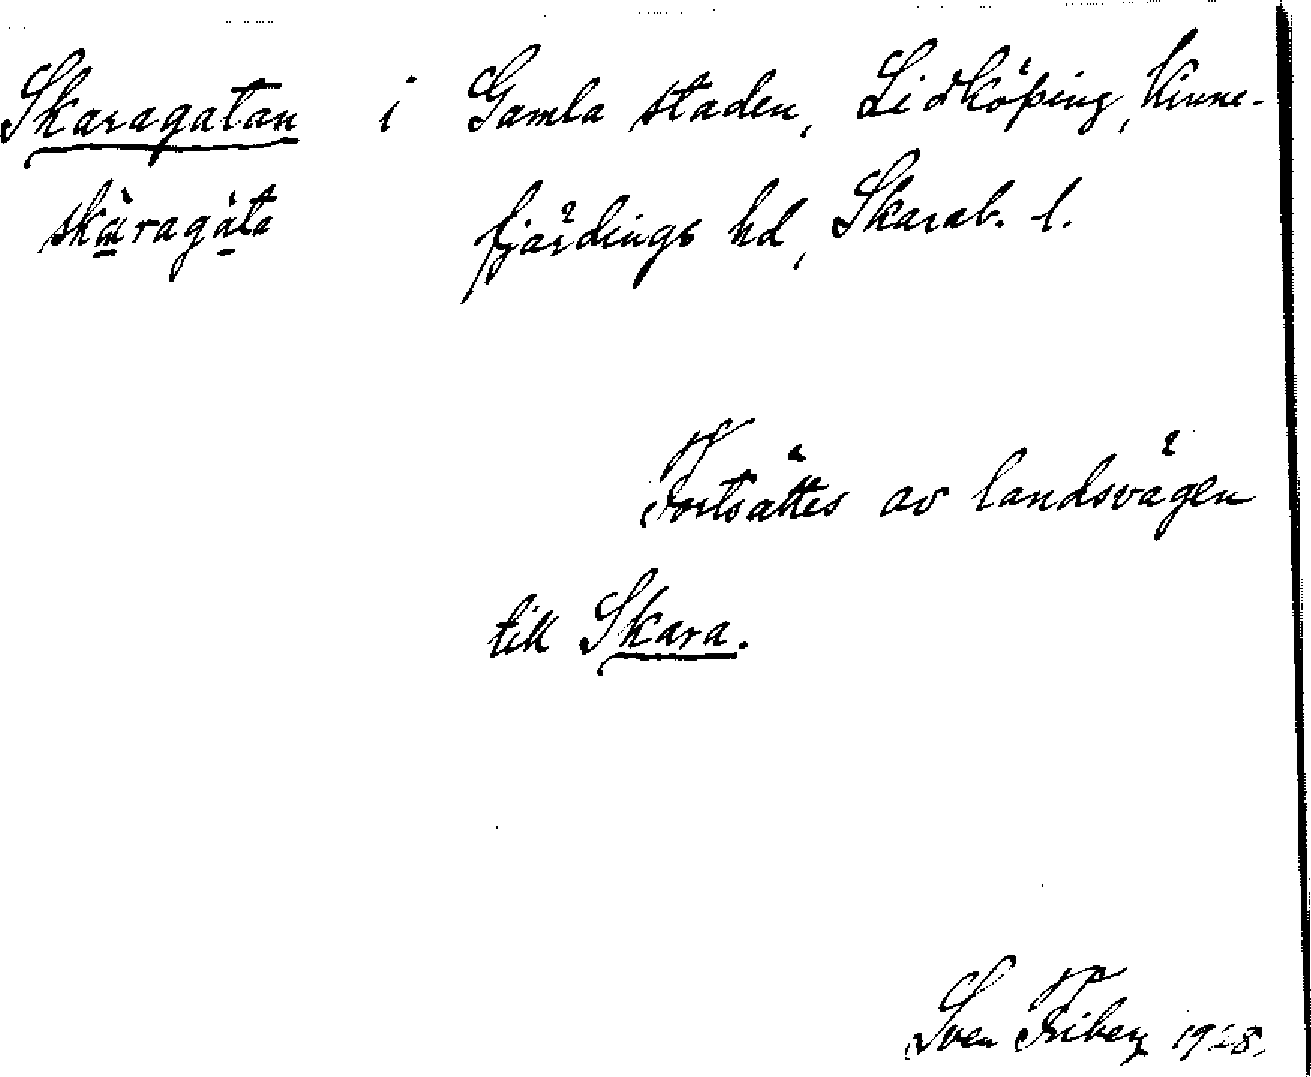 Skaragatan i Gamla staden, Lidköping, Kinne-
skàragàta fjärdings hd, Skarab. l.
Fortsättes av landsvägen
till Skara.
Sven Friberg 1928.